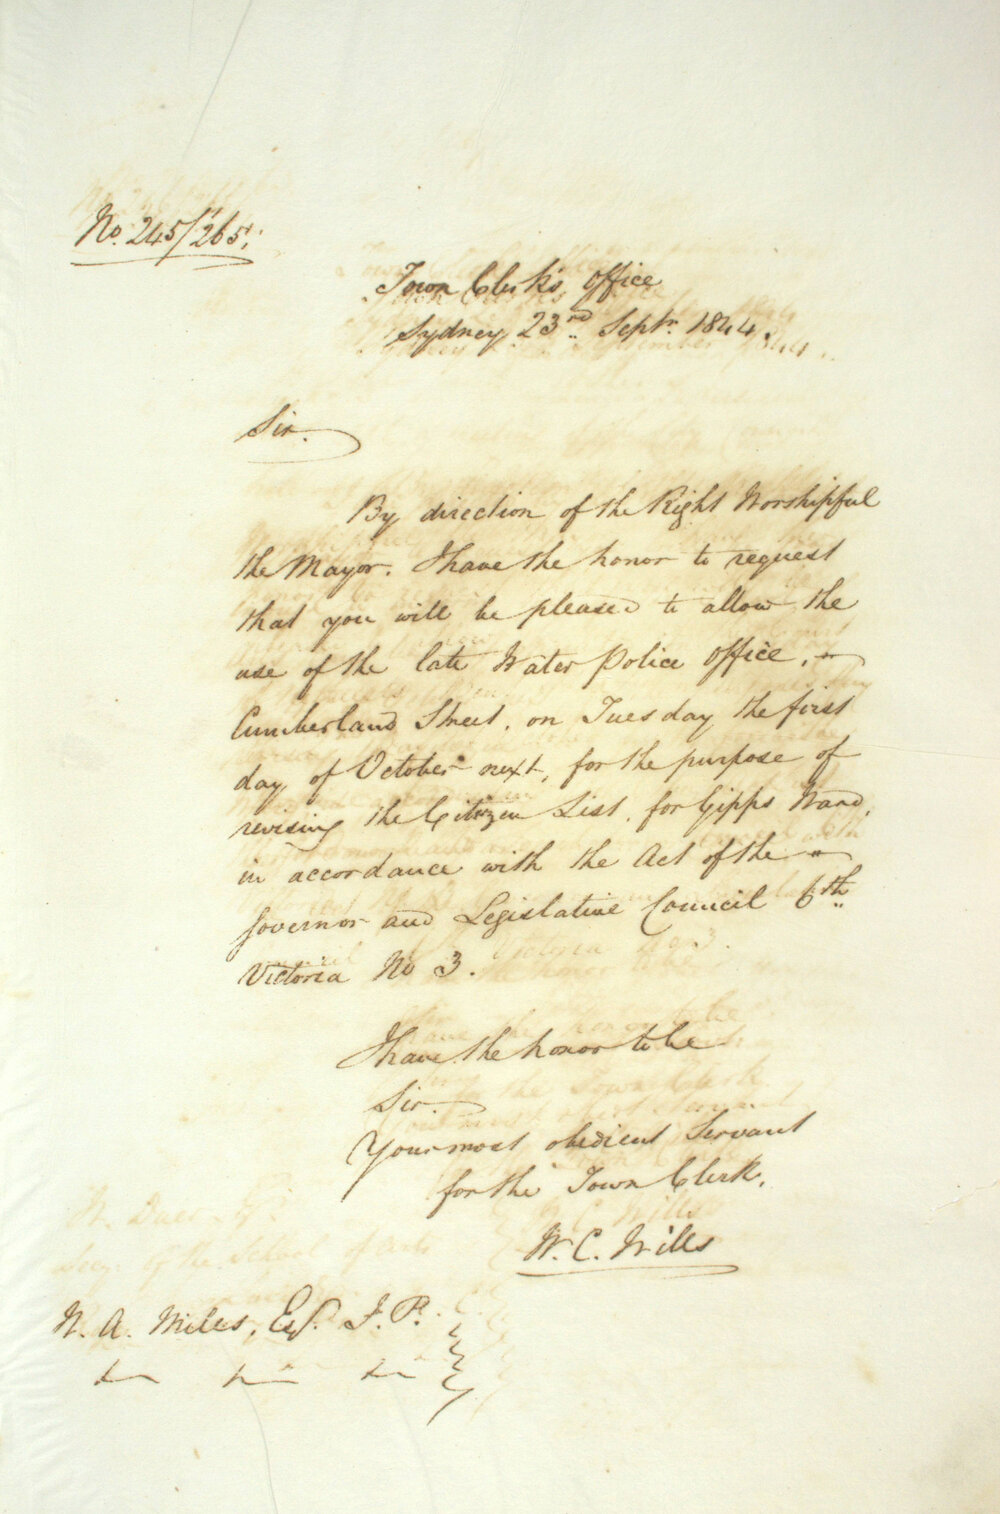 No. 245/265.
Town Clerk's Office
Sydney 23rd Septr. 1844.
Sir.
By direction of the Right Worshipful
the Mayor. I have the honor to request
that you will be pleased to allow the
use of the late Water Police Office, -
Cumberland Street, on Tuesday the first
day of October next, for the purpose of
revising the Citizen List, for Gipps Ward,
in accordance with the Act of the -
Governor and Legislative Council 6th
Victoria No 3.
I have the honor to be
Sir.
Your most obedient Servant
for the Town Clerk.
W. C. Wills
W. A. Miles, Esq. J. P.